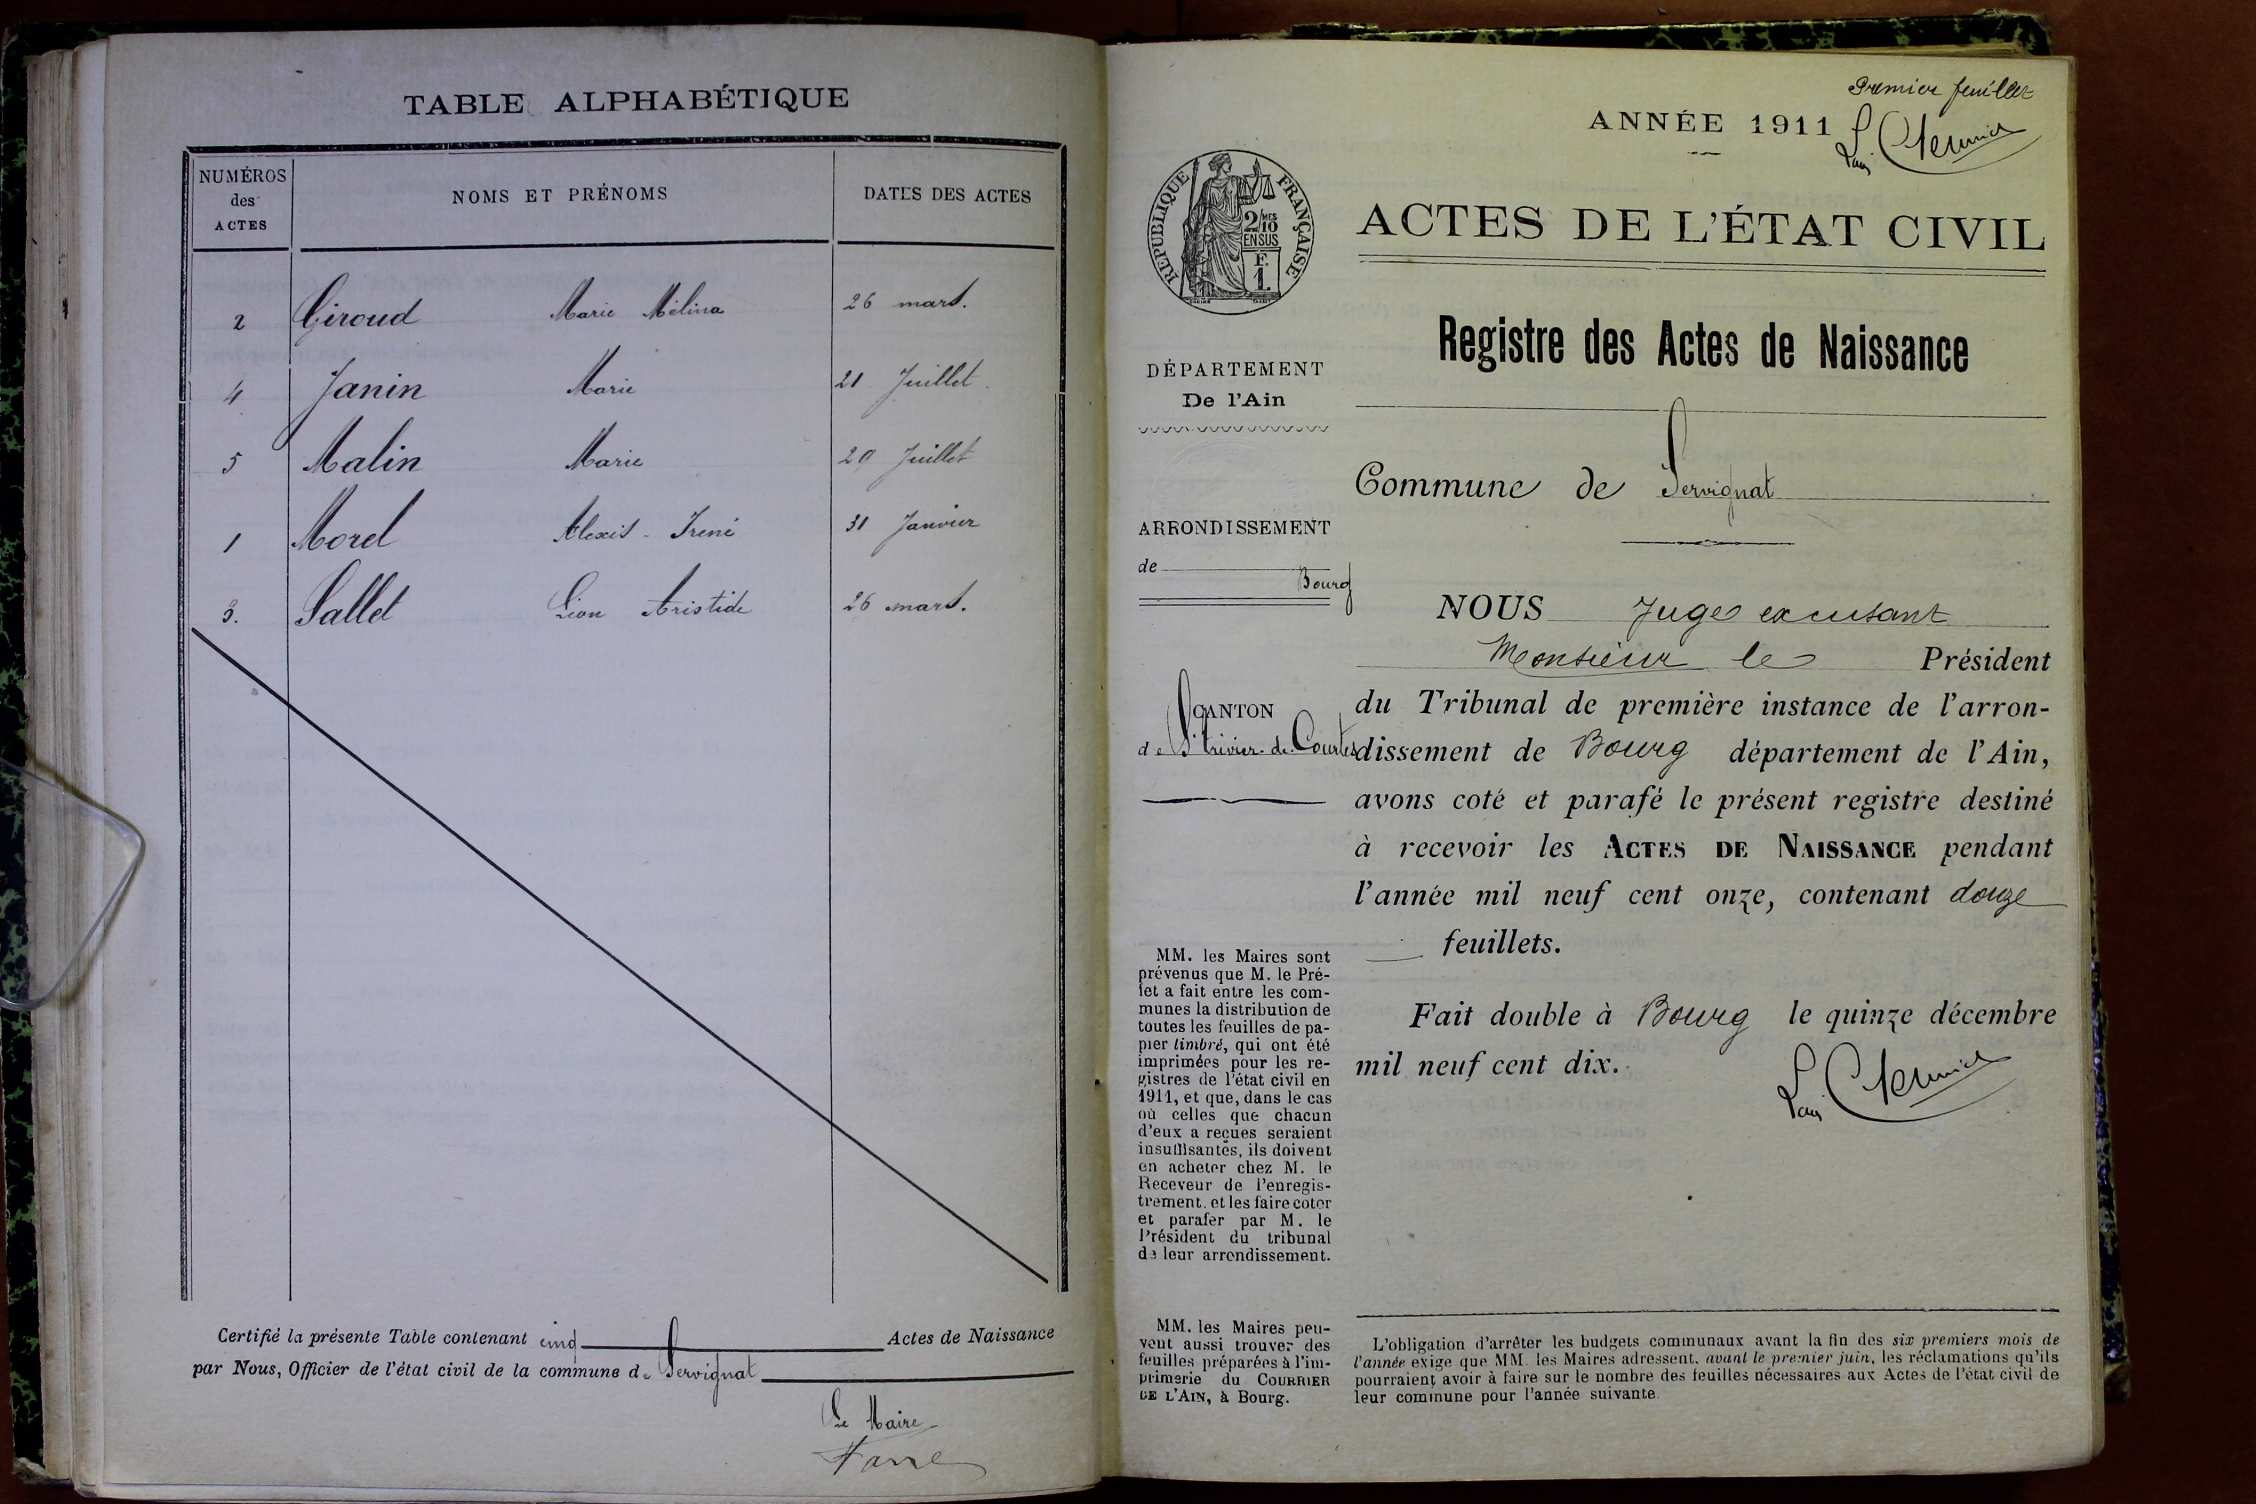 TABLE ALPHABÉTIQUE
NUMÉROS
des
ACTES
NOMS ET PRÉNOMS
DATES DES ACTES
2 Giroud Marie Mélina 26 mars.
4 Janin Marie 21 Juillet.
5 Malin Marie 29 Juillet
1 Morel Alexis - Irené 31 Janvier
3. Sallet Léon Aristide 26 mars.
Certifié la présente Table contenant cinq Actes de Naissance
par Nous, Officier de l'état civil de la commune de Servignat
Le Maire
Premier feuillet
ANNÉE 1911
RÉPUBLIQUE FRANÇAISE
2/10 MES
EN SUS
F.
1.
ACTES DE L'ÉTAT CIVIL
Registre des Actes de Naissance
DÉPARTEMENT
De l'Ain
Commune de Servignat
ARRONDISSEMENT
de Bourg
CANTON
de St Trivier-de-Courtes
NOUS Juge excusant
Monsieur le Président
du Tribunal de première instance de l'arron-
dissement de Bourg département de l'Ain,
avons coté et parafé le présent registre destiné
à recevoir les ACTES DE NAISSANCE pendant
l'année mil neuf cent onze, contenant douze
feuillets.
Fait double à Bourg le quinze décembre
mil neuf cent dix.
MM. les Maires sont
prévenus que M. le Pré-
fet a fait entre les com-
munes la distribution de
toutes les feuilles de pa-
pier timbré, qui ont été
imprimées pour les re-
gistres de l'état civil en
1911, et que, dans le cas
où celles que chacun
d'eux a reçues seraient
insuffisantes, ils doivent
en acheter chez M. le
Receveur de l'enregis-
trement. et les faire coter
et parafer par M. le
Président du tribunal
de leur arrondissement.
MM. les Maires peu-
vent aussi trouver des
feuilles préparées à l'im-
primerie du COURRIER
DE L'AIN, à Bourg.
L'obligation d'arrêter les budgets communaux avant la fin des six premiers mois de
l'année exige que MM. les Maires adressent, avant le premier juin, les réclamations qu'ils
pourraient avoir à faire sur le nombre des feuilles nécessaires aux Actes de l'état civil de
leur commune pour l'année suivante.